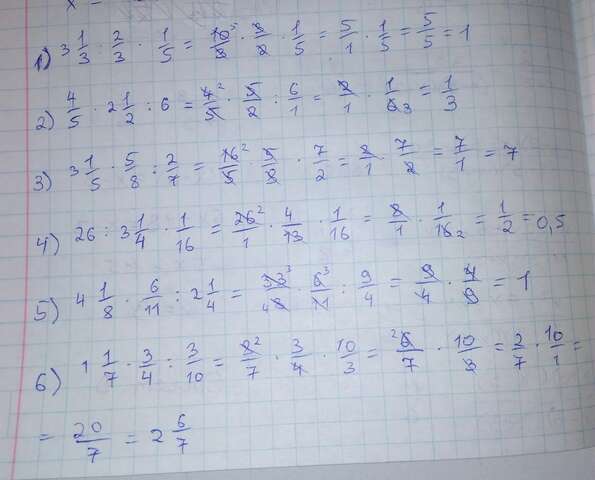 1) 3 1/3 : 2/3 · 1/5 = 10⁵/3 · 3/2 · 1/5 = 5/1 · 1/5 = 5/5 = 1
2) 4/5 · 2 1/2 : 6 = 4²/5 · 5/2 : 6/1 = 2/1 · 1/6₃ = 1/3
3) 3 1/5 · 5/8 : 2/7 = 16²/5 · 5/8 · 7/2 = 2/1 · 7/2 = 7/1 = 7
4) 26 : 3 1/4 · 1/16 = 26²/1 · 4/13 · 1/16 = 8/1 · 1/16₂ = 1/2 = 0,5
5) 4 1/8 · 6/11 : 2 1/4 = 33³/₄8 · 6³/11 : 9/4 = 9/4 · 4/9 = 1
6) 1 1/7 · 3/4 : 3/10 = 8²/7 · 3/4 · 10/3 = ²6/7 · 10/3 = 2/7 · 10/1 =
= 20/7 = 2 6/7